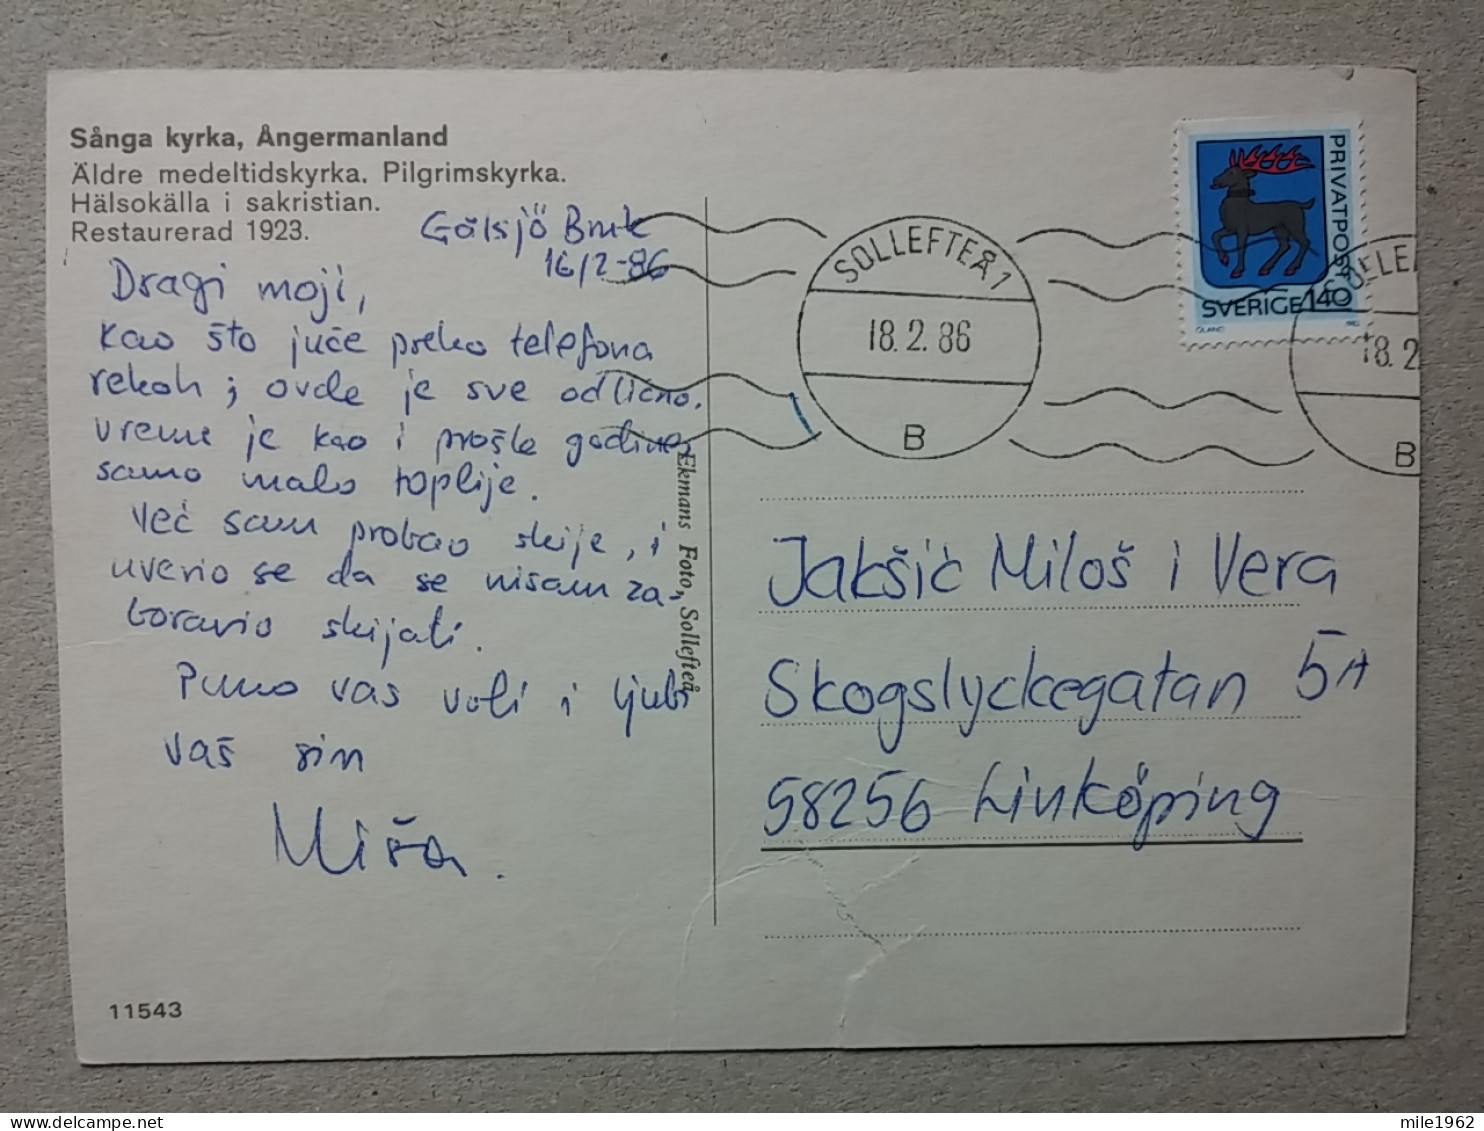 Sånga kyrka, Ångermanland
Äldre medeltidskyrka. Pilgrimskyrka.
Hälsokälla i sakristian.
Restaurerad 1923.
Gålsjö Bruk
16/2-86
Dragi moji,
kao što juče preko telefona
rekoh; ovde je sve odlično.
vreme je kao i prošle godine,
samo malo toplije.
Već sam probao skije, i
uverio se da se nisam za-
boravio skijati.
Puno vas voli i ljubi
vaš sin
Miša.
11543
Ekmans Foto, Sollefteå
SOLLEFTEÅ 1
18.2.86
B
PRIVATPOST
SVERIGE 140
ÖLAND 1982
SOLLEF
18.2
B
Jakšić Miloš i Vera
Skogslyckegatan 5A
58256 Linköping
mile1962